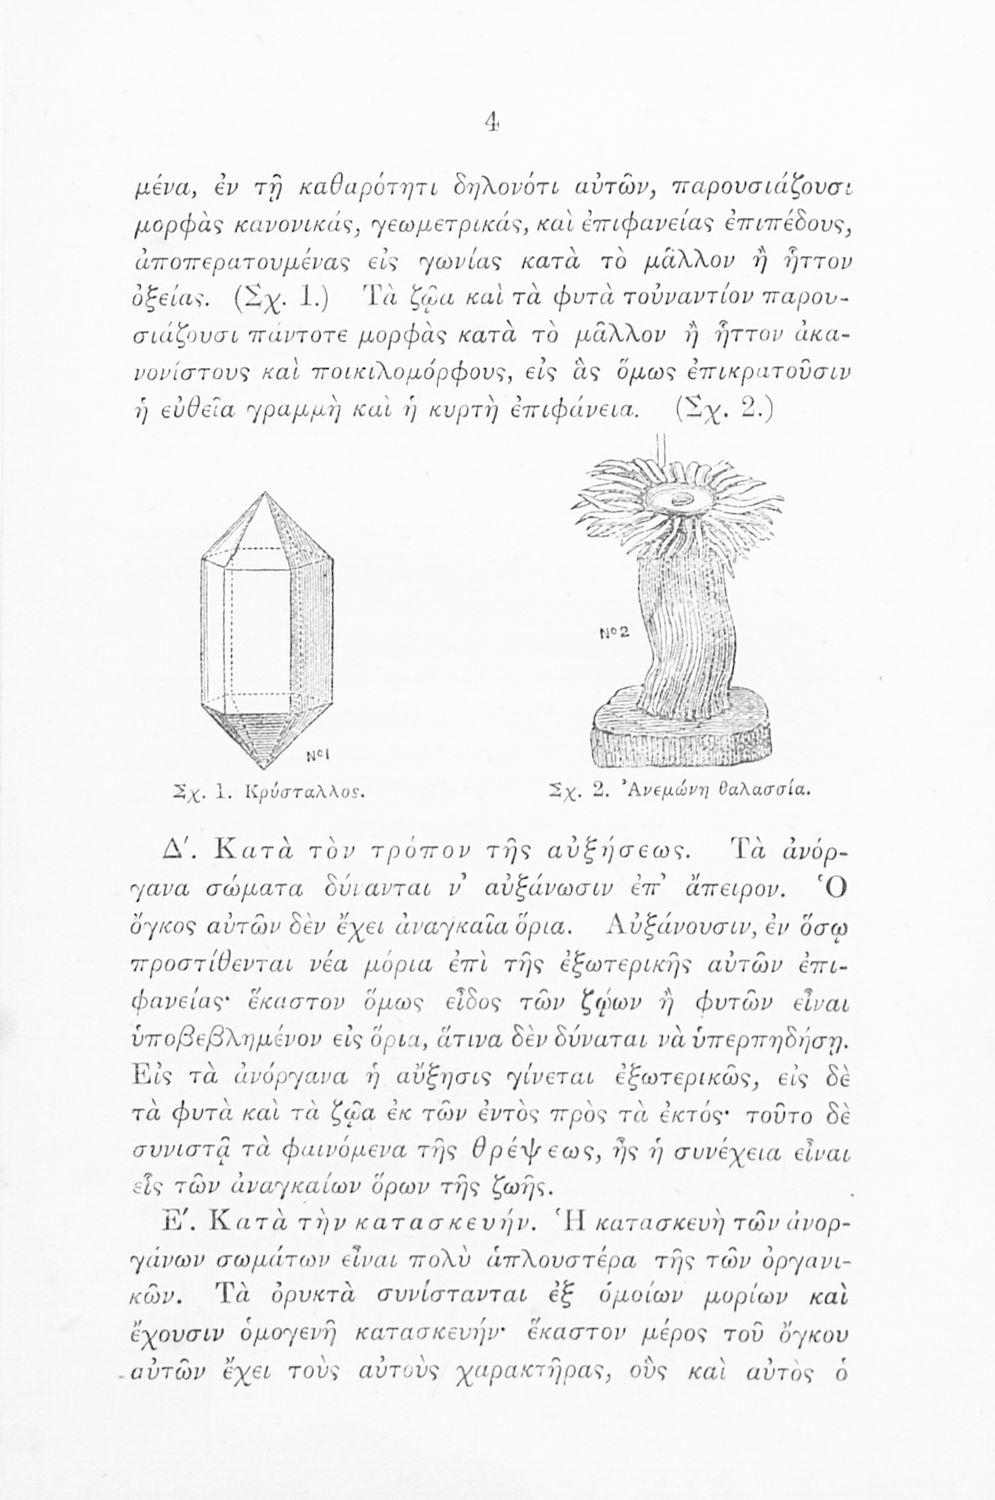 4
μένα, ἐν τῇ καθαρότητι δηλονότι αὐτῶν, παρουσιάζουσι
μορφὰς κανονικάς, γεωμετρικάς, καὶ ἐπιφανείας ἐπιπέδους,
ἀποπερατουμένας εἰς γωνίας κατὰ τὸ μᾶλλον ἢ ἧττον
ὀξείας. (Σχ. 1.) Τὰ ζῷα καὶ τὰ φυτὰ τοὐναντίον παρου-
σιάζουσι πάντοτε μορφὰς κατὰ τὸ μᾶλλον ἢ ἧττον ἀκα-
νονίστους καὶ ποικιλομόρφους, εἰς ἃς ὅμως ἐπικρατοῦσιν
ἡ εὐθεῖα γραμμὴ καὶ ἡ κυρτὴ ἐπιφάνεια. (Σχ. 2.)
Nº1
Nº2
Σχ. 1. Κρύσταλλος.
Σχ. 2. Ἀνεμώνη θαλασσία.
Δʹ. Κατὰ τὸν τρόπον τῆς αὐξήσεως. Τὰ ἀνόρ-
γανα σώματα δύνανται ν’ αὐξάνωσιν ἐπ’ ἄπειρον. Ὁ
ὄγκος αὐτῶν δὲν ἔχει ἀναγκαῖα ὅρια. Αὐξάνουσιν, ἐν ὅσῳ
προστίθενται νέα μόρια ἐπὶ τῆς ἐξωτερικῆς αὐτῶν ἐπι-
φανείας· ἕκαστον ὅμως εἶδος τῶν ζῴων ἢ φυτῶν εἶναι
ὑποβεβλημένον εἰς ὅρια, ἅτινα δὲν δύναται νὰ ὑπερπηδήσῃ.
Εἰς τὰ ἀνόργανα ἡ αὔξησις γίνεται ἐξωτερικῶς, εἰς δὲ
τὰ φυτὰ καὶ τὰ ζῷα ἐκ τῶν ἐντὸς πρὸς τὰ ἐκτός· τοῦτο δὲ
συνιστᾷ τὰ φαινόμενα τῆς θρέψεως, ἧς ἡ συνέχεια εἶναι
εἷς τῶν ἀναγκαίων ὅρων τῆς ζωῆς.
Εʹ. Κατὰ τὴν κατασκευήν. Ἡ κατασκευὴ τῶν ἀνορ-
γάνων σωμάτων εἶναι πολὺ ἁπλουστέρα τῆς τῶν ὀργανι-
κῶν. Τὰ ὀρυκτὰ συνίστανται ἐξ ὁμοίων μορίων καὶ
ἔχουσιν ὁμογενῆ κατασκευήν· ἕκαστον μέρος τοῦ ὄγκου
αὐτῶν ἔχει τοὺς αὐτοὺς χαρακτῆρας, οὓς καὶ αὐτὸς ὁ